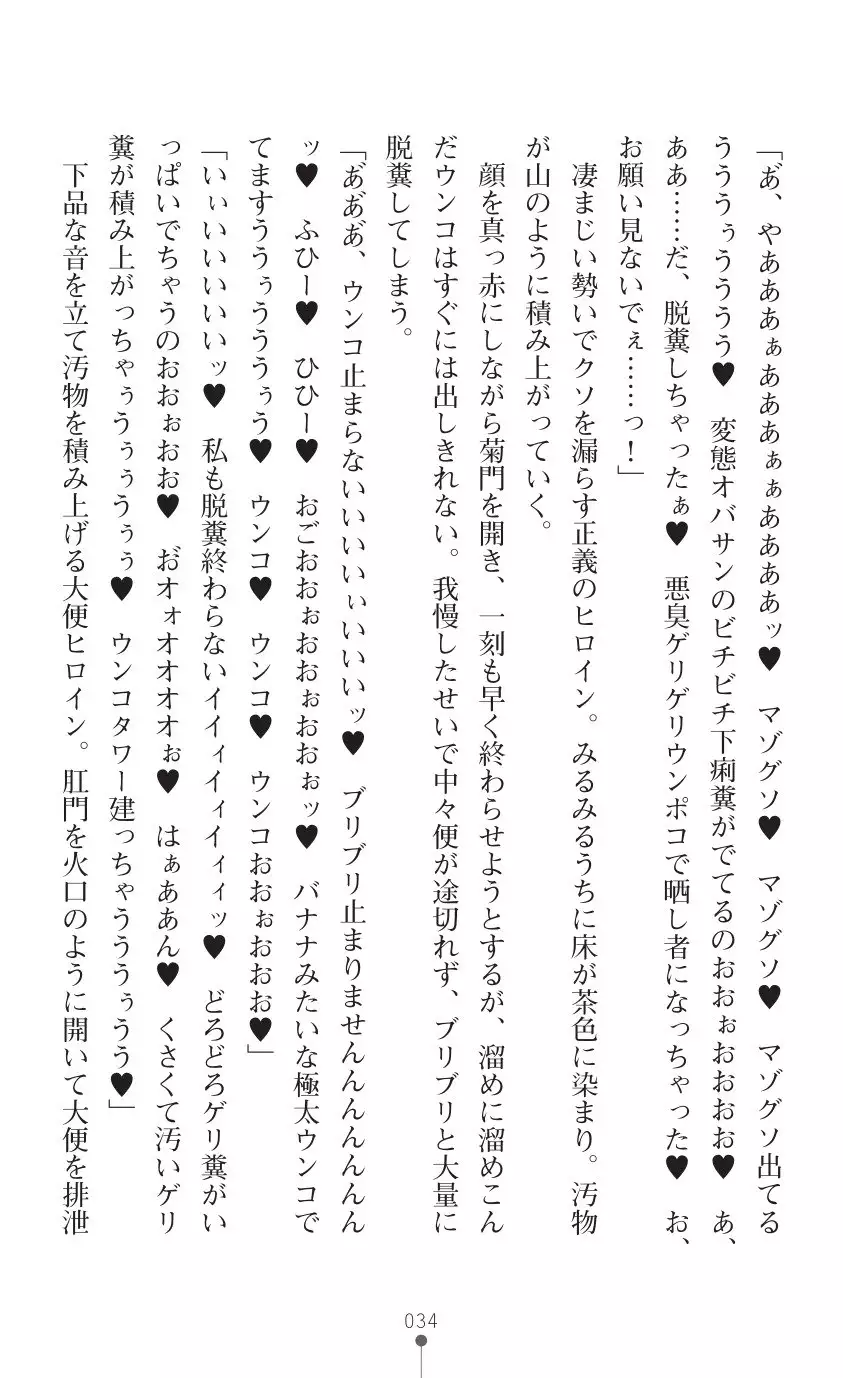 「あ゛、やあああぁあああぁぁああああッ♥　マゾグソ♥　マゾグソ♥　マゾグソ出てる
うううぅうううう♥　変態オバサンのビチビチ下痢糞がでてるのおおぉおおおお♥　あ、
ああ……だ、脱糞しちゃったぁ♥　悪臭ゲリゲリウンポコで晒し者になっちゃった♥　お、
お願い見ないでぇ……っ！」
　凄まじい勢いでクソを漏らす正義のヒロイン。みるみるうちに床が茶色に染まり。汚物
が山のように積み上がっていく。
　顔を真っ赤にしながら菊門を開き、一刻も早く終わらせようとするが、溜めに溜めこん
だウンコはすぐには出しきれない。我慢したせいで中々便が途切れず、ブリブリと大量に
脱糞してしまう。
「あ゛あ゛あ゛、ウンコ止まらないいいいいぃいいいッ♥　ブリブリ止まりませんんんんんんん
ッ♥　ふひー♥　ひひー♥　おごおおぉおおぉおおぉッ♥　バナナみたいな極太ウンコで
てますううぅうううぅう♥　ウンコ♥　ウンコ♥　ウンコおおぉおおお♥」
「いぃいいいいいッ♥　私も脱糞終わらないイイィイィイィィッ♥　どろどろゲリ糞がい
っぱいでちゃうのおおぉおお♥　お゛オォオオオオぉ♥　はぁああん♥　くさくて汚いゲリ
糞が積み上がっちゃぅうぅぅうぅぅ♥　ウンコタワー建っちゃうううぅうう♥」
　下品な音を立て汚物を積み上げる大便ヒロイン。肛門を火口のように開いて大便を排泄
034